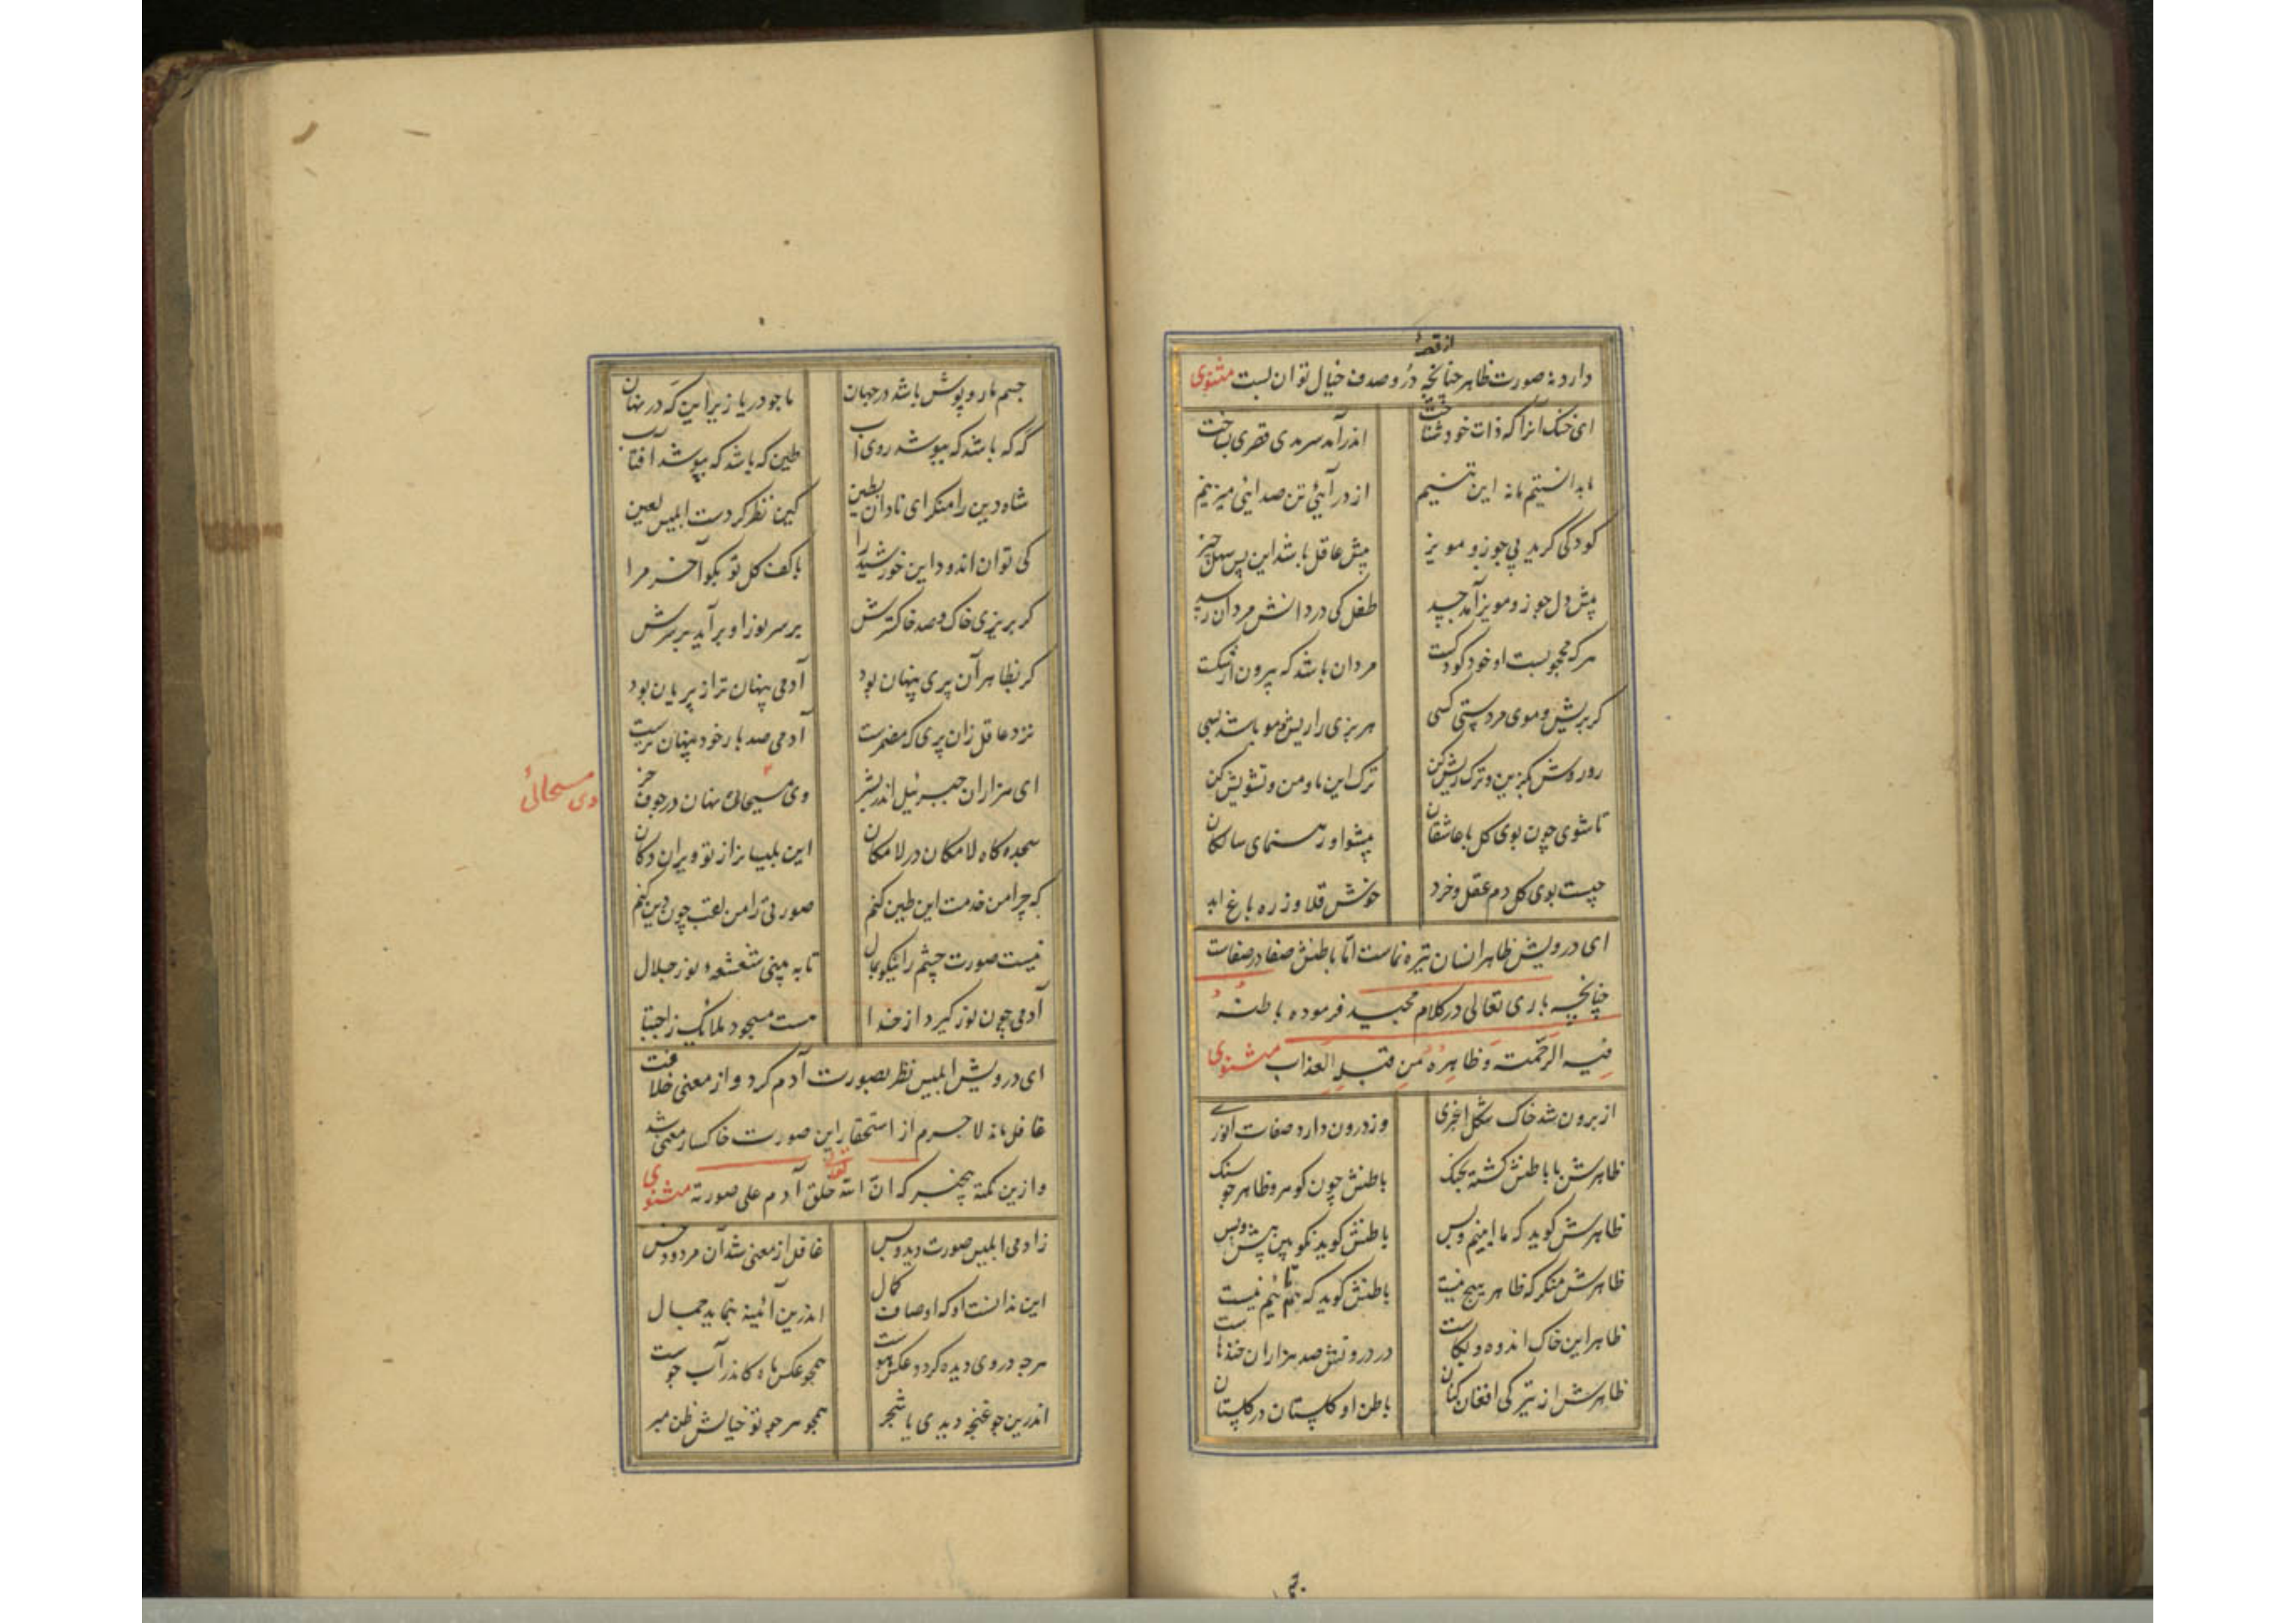 دارد نه صورت ظاهر چنانچه از قصهٔ در و صدف خیال توان بست مثنوی
ای خنک آنرا که ذات خود شناخت اندر آمد سرمدی قصری بساخت
ما بدانستیم ما نه این تنیم از در آیئ تن صد اینی میزنیم
کودکی گرید پی جوز و مویز پیش عاقل باشد این بس سهل چیز
پیش دل جوز و مویز آمد جسد طفل کی در دانش مردان رسد
هر که محجوبست او خود کودکست مردان باشد که بیرون از شکست
گر بریش و موی مردستی کسی هر بزی را ریش و مو باشد بسی
رو روش بگزین و ترک ریش کن ترک این ما و من و تشویش کن
تا شوی چون بوی گل با عاشقان پیشوا و رهنمای سالکان
چیست بوی گل دم عقل و خرد خوش قلاوز ره باغ ابد
ای درویش ظاهر انسان تیره نماست اما باطنش صفا در صفاست
چنانچه باری تعالی در کلام مجید فرموده باطنهُ
فیه الرحمته و ظاهرهُ من قبله العذاب مثنوی
از برون شد خاک شکل اغبری وز درون دارد صفات انوری
ظاهرش با باطنش گشته بجنگ باطنش چون گوهر و ظاهر چو سنگ
ظاهرش گوید که ما اینیم و بس باطنش گوید نکو بین پیش و پس
ظاهرش منکر که ظاهر هیچ نیست باطنش گوید که بنمائیم نیست
ظاهر این خاک اندوه و بکاست در درونش صد هزاران خندهاست
ظاهرش از تیرگی افغان کنان باطن او گلستان در گلستان
جسم ما روپوش باشد در جهان ما چو دریا زیر این که در نهان
که که باشد که بپوشد روی آب طین که باشد که بپوشد آفتاب
شاه دین را منکر ای نادان بطین کین نظر کردست ابلیس لعین
کی توان اندود این خورشید را با کف گل تو بگو آخر مرا
گر بریزی خاک و صد خاکسترش بر سر نور او برآید بر سرش
گر بظاهر آن پری پنهان بود آدمی پنهان تر از پریان بود
نزد عاقل زان پری که مضمرست آدمی صد بار خود پنهان ترست
ای هزاران جبرئیل اندر بشر وی مسیحای نهان در جوف خر
وی مسیحائ
سجده گاه لامکان در لامکان این بلیسا نرا ز تو ویران دکان
که چرا من خدمت این طین کنم صورتی را من لقب چون دین کنم
نیست صورت چشم را نیکو بمال تا به بینی شعشعهٔ نور جلال
آدمی چون نور گیرد از خدا هست مسجود ملائک ز اجتبا
ای درویش ابلیس نظر بصورت آدم کرد و از معنی خلافت
غافل ماند لاجرم از استحقار این صورت خاکسار معنی شد
و ازین نکته بیخبر که ان الله تعالی خلق آدم علی صورته مثنوی
زادمی ابلیس صورت دید و بس غافل از معنی شد آن مردود خس
این ندانست او که اوصاف کمال اندرین آئینه بنماید جمال
هرچه در وی دیده گردد عکس هوست همچو عکس ماه کاندر آب جوست
اندرین جو غنچه دیدی یا شجر همچو هر جو تو خیالش ظن مبر